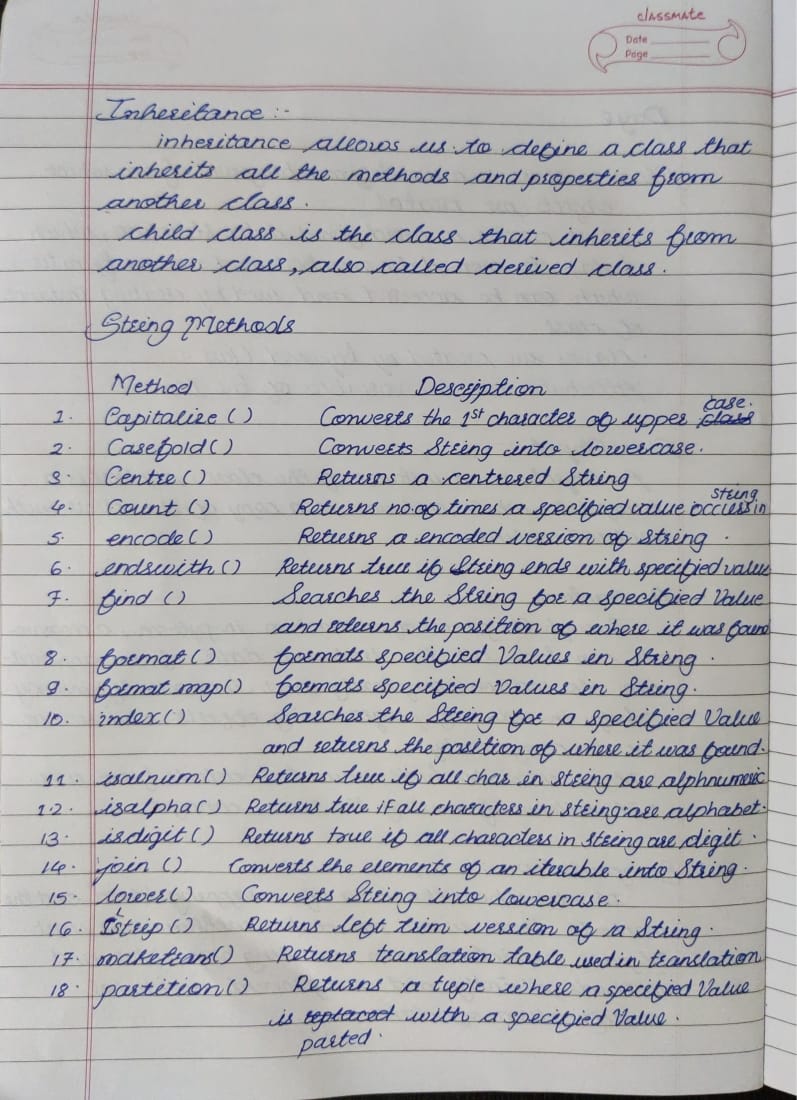 classmate
Date
Page
Inheritance :-
inheritance allows us to define a class that
inherits all the methods and properties from
another class.
child class is the class that inherits from
another class, also called derived class.
String Methods
Method Description
1. Capitalize () Converts the 1st character of upper class case.
2. Casefold () Converts String into lowercase.
3. Centre () Returns a centrered String
4. Count () Returns no. of times a specified value occurs in string
5. encode () Returns a encoded version of String.
6. endswith () Returns true if String ends with specified value
7. find () Searches the String for a specified Value
and returns the position of where it was found
8. format () formats specified Values in String.
9. format map() formats specified Values in String.
10. index () Searches the String for a specified Value
and returns the position of where it was found.
11. isalnum () Returns true if all char in string are alphnumeric
12. isalpha () Returns true if all characters in string are alphabet.
13. isdigit () Returns true if all characters in string are digit.
14. join () Converts the elements of an iterable into String.
15. lower () Converts String into lowercase.
16. lstrip () Returns left trim version of a String.
17. maketrans() Returns translation table used in translation
18. partition () Returns a tuple where a specified Value
is replaced with a specified Value.
parted.